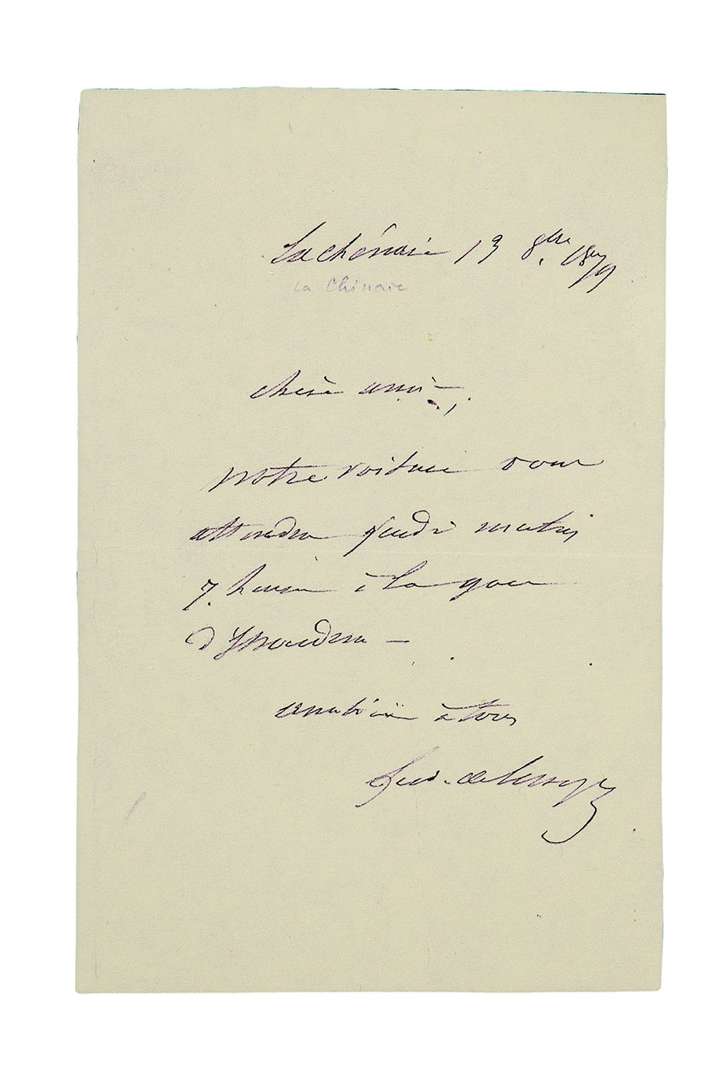 La chénaie 13 8bre 1879
La Chénaie
chère amie,
notre voiture vous
attendra jeudi matin
7. heures à la gare
d'Issoudun —
à vous
Ferd. de Lesseps